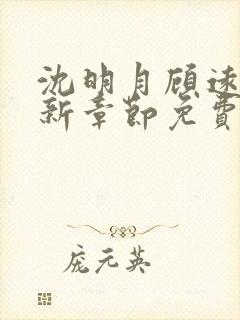 沈明月顾远
新章节免费
庞元英